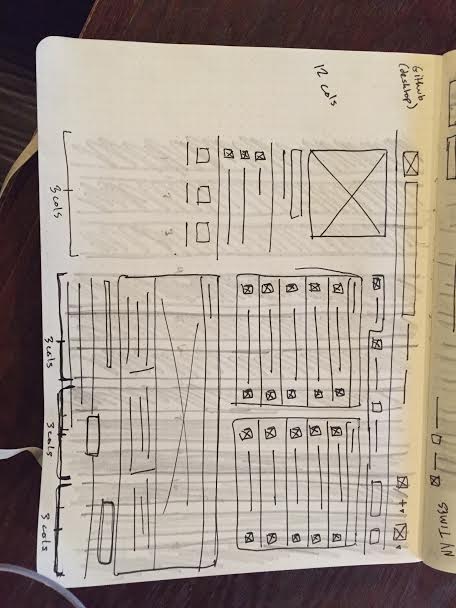 Github
(desktop)
12 cols
3 cols
3 cols
3 cols
3 cols
NY TIMES